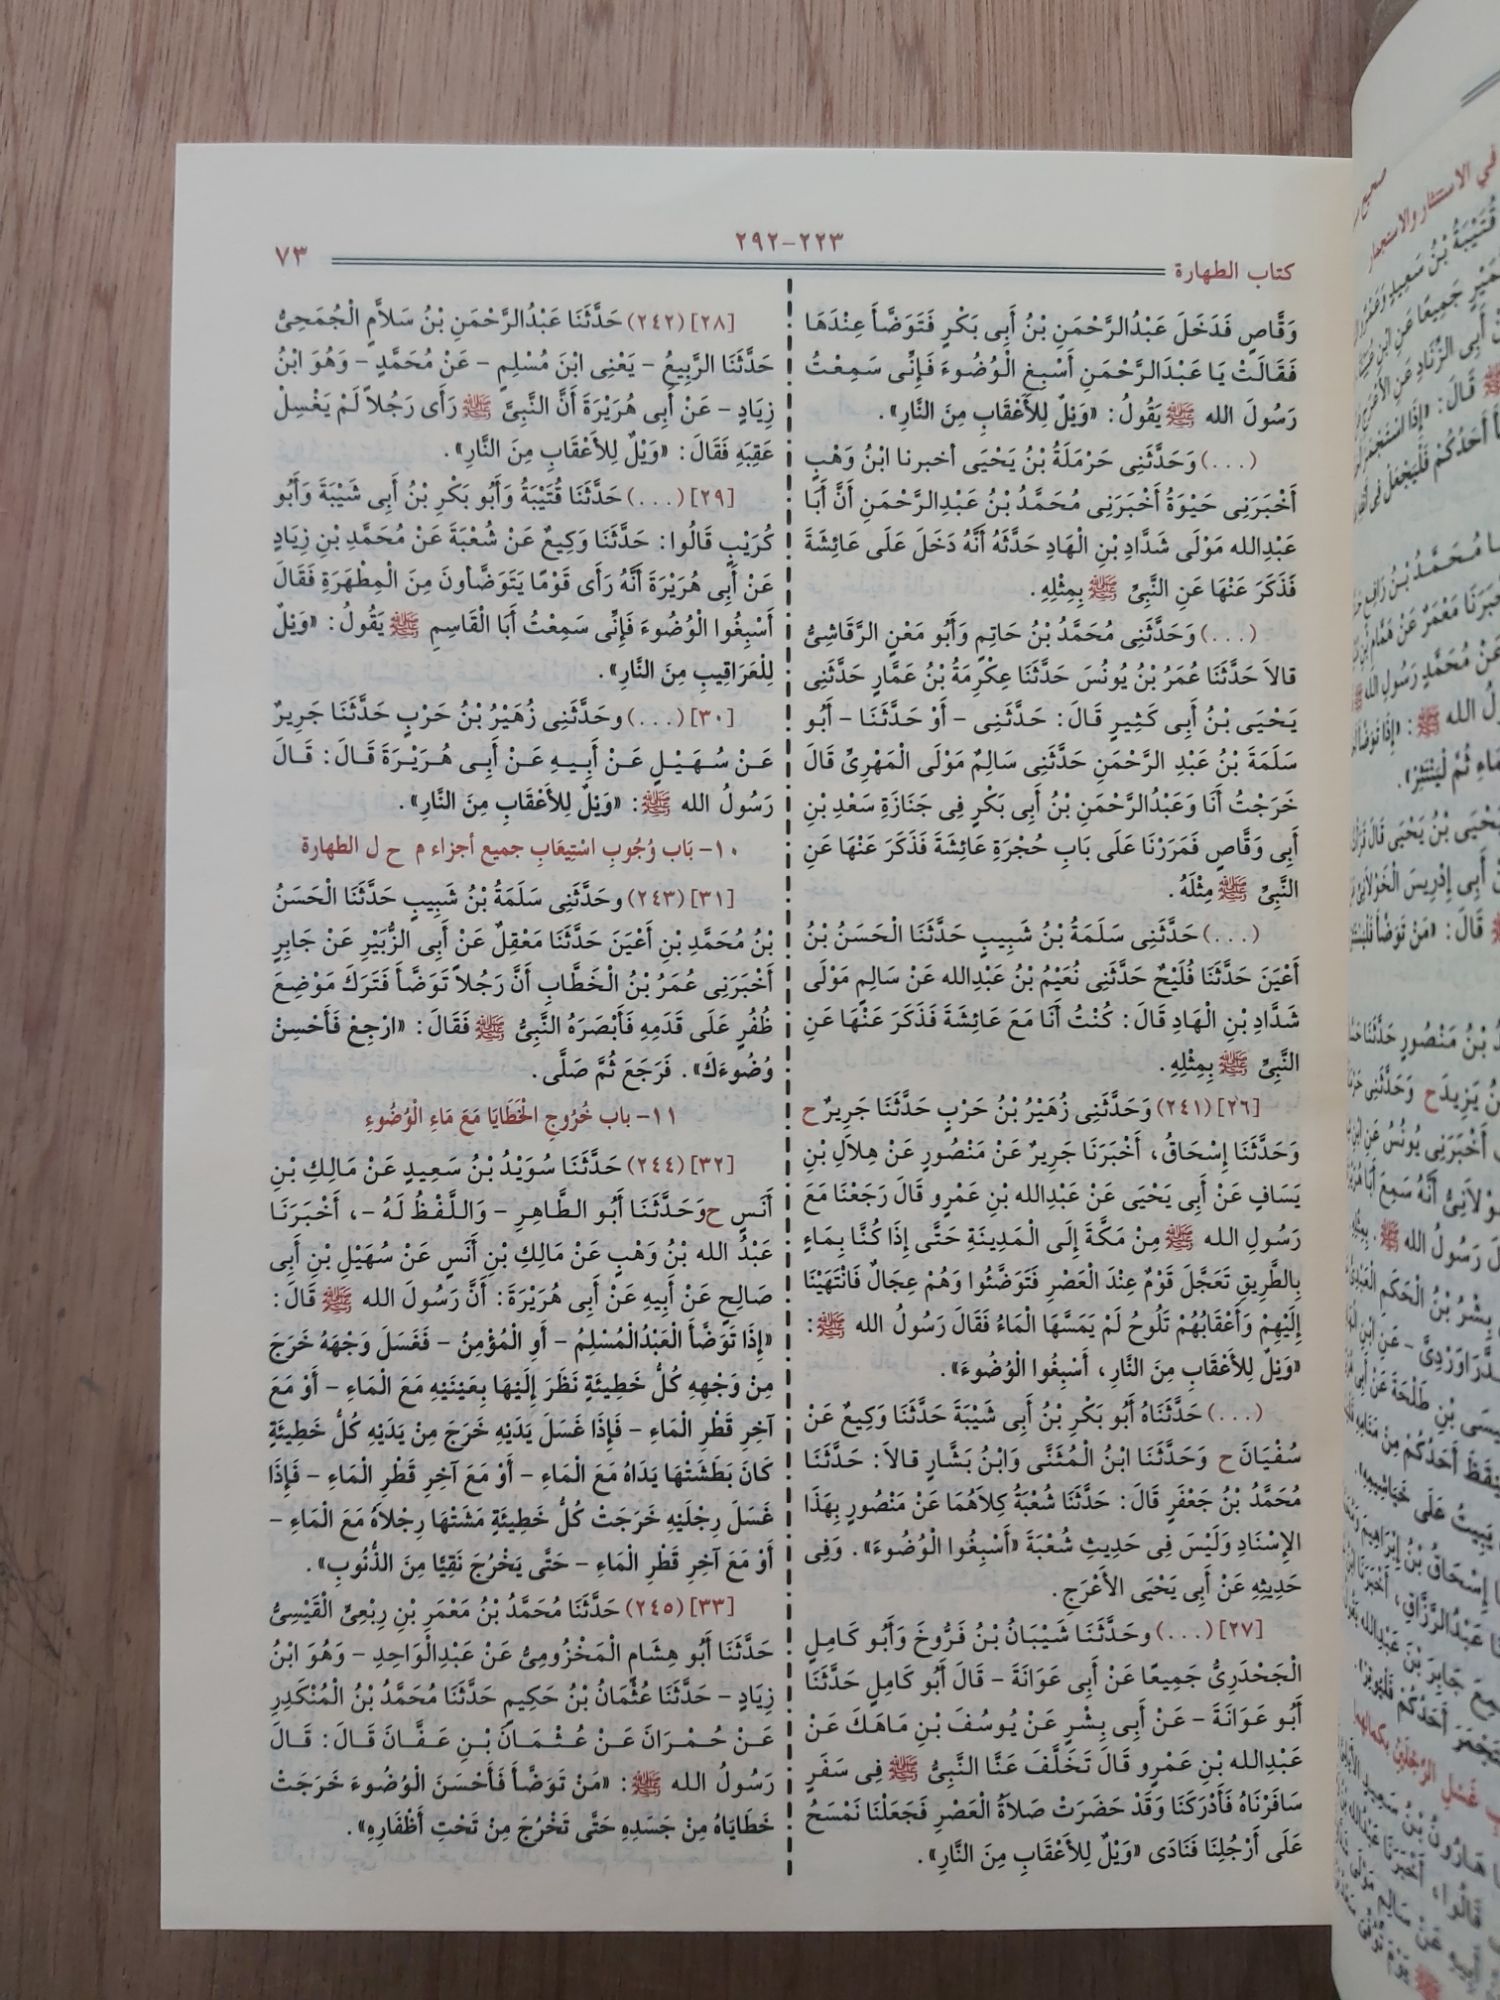 ٢٢٣-٢٩٢
كتاب الطهارة
٧٣
وَقَّاصٍ فَدَخَلَ عَبْدُالرَّحْمَنِ بْنُ أَبِى بَكْرٍ فَتَوَضَّأَ عِنْدَهَا
فَقَالَتْ يَا عَبْدَالرَّحْمَنِ أَسْبِغِ الْوُضُوءَ فَإِنِّى سَمِعْتُ
رَسُولَ الله ﷺ يَقُولُ: «وَيْلٌ لِلأَعْقَابِ مِنَ النَّارِ».
(...) وَحَدَّثَنِى حَرْمَلَةُ بْنُ يَحْيَى أخبرنا ابْنُ وَهْبٍ
أَخْبَرَنِى حَيْوَةُ أَخْبَرَنِى مُحَمَّدُ بْنُ عَبْدِالرَّحْمَنِ أَنَّ أَبَا
عَبْدِالله مَوْلَى شَدَّادِ بْنِ الْهَادِ حَدَّثَهُ أَنَّهُ دَخَلَ عَلَى عَائِشَةَ
فَذَكَرَ عَنْهَا عَنِ النَّبِىِّ ﷺ بِمِثْلِهِ.
(...) وَحَدَّثَنِى مُحَمَّدُ بْنُ حَاتِمٍ وَأَبُو مَعْنٍ الرَّقَاشِىُّ
قالاَ حَدَّثَنَا عُمَرُ بْنُ يُونُسَ حَدَّثَنَا عِكْرِمَةُ بْنُ عَمَّارٍ حَدَّثَنِى
يَحْيَى بْنُ أَبِى كَثِيرٍ قَالَ: حَدَّثَنِى - أَوْ حَدَّثَنَا - أَبُو
سَلَمَةَ بْنُ عَبْدِ الرَّحْمَنِ حَدَّثَنِى سَالِمٌ مَوْلَى الْمَهْرِىِّ قَالَ
خَرَجْتُ أَنَا وَعَبْدُالرَّحْمَنِ بْنُ أَبِى بَكْرٍ فِى جَنَازَةِ سَعْدِ بْنِ
أَبِى وَقَّاصٍ فَمَرَرْنَا عَلَى بَابِ حُجْرَةِ عَائِشَةَ فَذَكَرَ عَنْهَا عَنِ
النَّبِىِّ ﷺ مِثْلَهُ.
(...) حَدَّثَنِى سَلَمَةُ بْنُ شَبِيبٍ حَدَّثَنَا الْحَسَنُ بْنُ
أَعْيَنَ حَدَّثَنَا فُلَيْحٌ حَدَّثَنِى نُعَيْمُ بْنُ عَبْدِالله عَنْ سَالِمٍ مَوْلَى
شَدَّادِ بْنِ الْهَادِ قَالَ: كُنْتُ أَنَا مَعَ عَائِشَةَ فَذَكَرَ عَنْهَا عَنِ
النَّبِىِّ ﷺ بِمِثْلِهِ.
[٢٦] (٢٤١) وَحَدَّثَنِى زُهَيْرُ بْنُ حَرْبٍ حَدَّثَنَا جَرِيرٌ ح
وَحَدَّثَنَا إِسْحَاقُ، أَخْبَرَنَا جَرِيرٌ عَنْ مَنْصُورٍ عَنْ هِلاَلِ بْنِ
يَسَافٍ عَنْ أَبِى يَحْيَى عَنْ عَبْدِالله بْنِ عَمْرٍو قَالَ رَجَعْنَا مَعَ
رَسُولِ الله ﷺ مِنْ مَكَّةَ إِلَى الْمَدِينَةِ حَتَّى إِذَا كُنَّا بِمَاءٍ
بِالطَّرِيقِ تَعَجَّلَ قَوْمٌ عِنْدَ الْعَصْرِ فَتَوَضَّئُوا وَهُمْ عِجَالٌ فَانْتَهَيْنَا
إِلَيْهِمْ وَأَعْقَابُهُمْ تَلُوحُ لَمْ يَمَسَّهَا الْمَاءُ فَقَالَ رَسُولُ الله ﷺ:
«وَيْلٌ لِلأَعْقَابِ مِنَ النَّارِ، أَسْبِغُوا الْوُضُوءَ».
(...) حَدَّثَنَاهُ أَبُو بَكْرِ بْنُ أَبِى شَيْبَةَ حَدَّثَنَا وَكِيعٌ عَنْ
سُفْيَانَ ح وَحَدَّثَنَا ابْنُ الْمُثَنَّى وَابْنُ بَشَّارٍ قالاَ: حَدَّثَنَا
مُحَمَّدُ بْنُ جَعْفَرٍ قَالَ: حَدَّثَنَا شُعْبَةُ كِلاَهُمَا عَنْ مَنْصُورٍ بِهَذَا
الإِسْنَادِ وَلَيْسَ فِى حَدِيثِ شُعْبَةَ «أَسْبِغُوا الْوُضُوءَ». وَفِى
حَدِيثِهِ عَنْ أَبِى يَحْيَى الأَعْرَجِ.
[٢٧] (...) وحَدَّثَنَا شَيْبَانُ بْنُ فَرُّوخَ وَأَبُو كَامِلٍ
الْجَحْدَرِىُّ جَمِيعًا عَنْ أَبِى عَوَانَةَ - قَالَ أَبُو كَامِلٍ حَدَّثَنَا
أَبُو عَوَانَةَ - عَنْ أَبِى بِشْرٍ عَنْ يُوسُفَ بْنِ مَاهَكَ عَنْ
عَبْدِالله بْنِ عَمْرٍو قَالَ تَخَلَّفَ عَنَّا النَّبِىُّ ﷺ فِى سَفَرٍ
سَافَرْنَاهُ فَأَدْرَكَنَا وَقَدْ حَضَرَتْ صَلاَةُ الْعَصْرِ فَجَعَلْنَا نَمْسَحُ
عَلَى أَرْجُلِنَا فَنَادَى «وَيْلٌ لِلأَعْقَابِ مِنَ النَّارِ».
[٢٨] (٢٤٢) حَدَّثَنَا عَبْدُالرَّحْمَنِ بْنُ سَلاَّمٍ الْجُمَحِىُّ
حَدَّثَنَا الرَّبِيعُ - يَعْنِى ابْنَ مُسْلِمٍ - عَنْ مُحَمَّدٍ - وَهُوَ ابْنُ
زِيَادٍ - عَنْ أَبِى هُرَيْرَةَ أَنَّ النَّبِىَّ ﷺ رَأَى رَجُلاً لَمْ يَغْسِلْ
عَقِبَهِ فَقَالَ: «وَيْلٌ لِلأَعْقَابِ مِنَ النَّارِ».
[٢٩] (...) حَدَّثَنَا قُتَيْبَةُ وَأَبُو بَكْرِ بْنُ أَبِى شَيْبَةَ وَأَبُو
كُرَيْبٍ قَالُوا: حَدَّثَنَا وَكِيعٌ عَنْ شُعْبَةَ عَنْ مُحَمَّدِ بْنِ زِيَادٍ
عَنْ أَبِى هُرَيْرَةَ أَنَّهُ رَأَى قَوْمًا يَتَوَضَّأونَ مِنَ الْمِطْهَرَةِ فَقَالَ
أَسْبِغُوا الْوُضُوءَ فَإِنِّى سَمِعْتُ أَبَا الْقَاسِمِ ﷺ يَقُولُ: «وَيْلٌ
لِلْعَرَاقِيبِ مِنَ النَّارِ».
[٣٠] (...) وحَدَّثَنِى زُهَيْرُ بْنُ حَرْبٍ حَدَّثَنَا جَرِيرٌ
عَنْ سُهَيْلٍ عَنْ أَبِيهِ عَنْ أَبِى هُرَيْرَةَ قَالَ: قَالَ
رَسُولُ الله ﷺ: «وَيْلٌ لِلأَعْقَابِ مِنَ النَّارِ».
١٠- بَاب وُجُوبِ اسْتِيعَابِ جميع أجزاء م ح ل الطهارة
[٣١] (٢٤٣) وحَدَّثَنِى سَلَمَةُ بْنُ شَبِيبٍ حَدَّثَنَا الْحَسَنُ
بْنُ مُحَمَّدِ بْنِ أَعْيَنَ حَدَّثَنَا مَعْقِلٌ عَنْ أَبِى الزُّبَيْرِ عَنْ جَابِرٍ
أَخْبَرَنِى عُمَرُ بْنُ الْخَطَّابِ أَنَّ رَجُلاً تَوَضَّأَ فَتَرَكَ مَوْضِعَ
ظُفُرٍ عَلَى قَدَمِهِ فَأَبْصَرَهُ النَّبِىُّ ﷺ فَقَالَ: «ارْجِعْ فَأَحْسِنْ
وُضُوءَكَ». فَرَجَعَ ثُمَّ صَلَّى.
١١- باب خُرُوجِ الْخَطَايَا مَعَ مَاءِ الْوُضُوءِ
[٣٢] (٢٤٤) حَدَّثَنَا سُوَيْدُ بْنُ سَعِيدٍ عَنْ مَالِكِ بْنِ
أَنَسٍ ح وَحَدَّثَنَا أَبُو الطَّاهِرِ - وَاللَّفْظُ لَهُ -، أَخْبَرَنَا
عَبْدُ الله بْنُ وَهْبٍ عَنْ مَالِكِ بْنِ أَنَسٍ عَنْ سُهَيْلِ بْنِ أَبِى
صَالِحٍ عَنْ أَبِيهِ عَنْ أَبِى هُرَيْرَةَ: أَنَّ رَسُولَ الله ﷺ قَالَ:
«إِذَا تَوَضَّأَ الْعَبْدُالْمُسْلِمُ - أَوِ الْمُؤْمِنُ - فَغَسَلَ وَجْهَهُ خَرَجَ
مِنْ وَجْهِهِ كُلُّ خَطِيئَةٍ نَظَرَ إِلَيْهَا بِعَيْنَيْهِ مَعَ الْمَاءِ - أَوْ مَعَ
آخِرِ قَطْرِ الْمَاءِ - فَإِذَا غَسَلَ يَدَيْهِ خَرَجَ مِنْ يَدَيْهِ كُلُّ خَطِيئَةٍ
كَانَ بَطَشَتْهَا يَدَاهُ مَعَ الْمَاءِ - أَوْ مَعَ آخِرِ قَطْرِ الْمَاءِ - فَإِذَا
غَسَلَ رِجْلَيْهِ خَرَجَتْ كُلُّ خَطِيئَةٍ مَشَتْهَا رِجْلاَهُ مَعَ الْمَاءِ -
أَوْ مَعَ آخِرِ قَطْرِ الْمَاءِ - حَتَّى يَخْرُجَ نَقِيًا مِنَ الذُّنُوبِ».
[٣٣] (٢٤٥) حَدَّثَنَا مُحَمَّدُ بْنُ مَعْمَرِ بْنِ رِبْعِىٍّ الْقَيْسِىُّ
حَدَّثَنَا أَبُو هِشَامٍ الْمَخْزُومِىُّ عَنْ عَبْدِالْوَاحِدِ - وَهُوَ ابْنُ
زِيَادٍ - حَدَّثَنَا عُثْمَانُ بْنُ حَكِيمٍ حَدَّثَنَا مُحَمَّدُ بْنُ الْمُنْكَدِرِ
عَنْ حُمْرَانَ عَنْ عُثْمَانَ بْنِ عَفَّانَ قَالَ: قَالَ
رَسُولُ الله ﷺ: «مَنْ تَوَضَّأَ فَأَحْسَنَ الْوُضُوءَ خَرَجَتْ
خَطَايَاهُ مِنْ جَسَدِهِ حَتَّى تَخْرُجَ مِنْ تَحْتِ أَظْفَارِهِ».